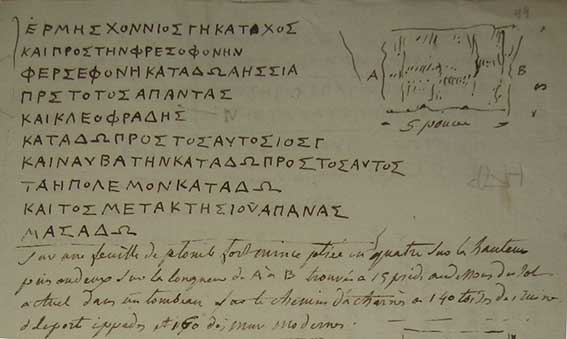 ΕΡΜΗΣ ΧΟΝΝΙΟΣ ΓΗΚΑΤΟΧΟΣ
ΚΑΙΠΡΟΣΤΗΝΦΡΕΣΟΦΟΝΗΝ
ΦΕΡΣΕΦΟΝΗΚΑΤΑΔΩΑΗΣΣΙΑ
ΠΡΣΤΟΤΟΣΑΠΑΝΤΑΣ
ΚΑΙΚΛΕΟΦΡΑΔΗΣ
ΚΑΤΑΔΩΠΡΟΣΤΟΣΑΥΤΟΣΙΟΣΓ
ΚΑΙΝΑΥΒΑΤΗΝΚΑΤΑΔΩΠΡΟΣΤΟΣΑΥΤΟΣ
ΤΛΗΠΟΛΕΜΟΝΚΑΤΑΔΩ
ΚΑΙΤΟΣΜΕΤΑΚΤΗΣΙΟΥΑΠΑΝΑΣ
ΜΑΣΑΔΩ
A B
5 pouces
Sur une feuille de plomb fort mince pliée en quatre sur la hauteur
puis en deux sur la longueur de A à B trouvée à 15 pieds au dessous du sol
actuel dans un tombeau sur le chemin d'acharnès à 140 toises de
et 150 des murs modernes.